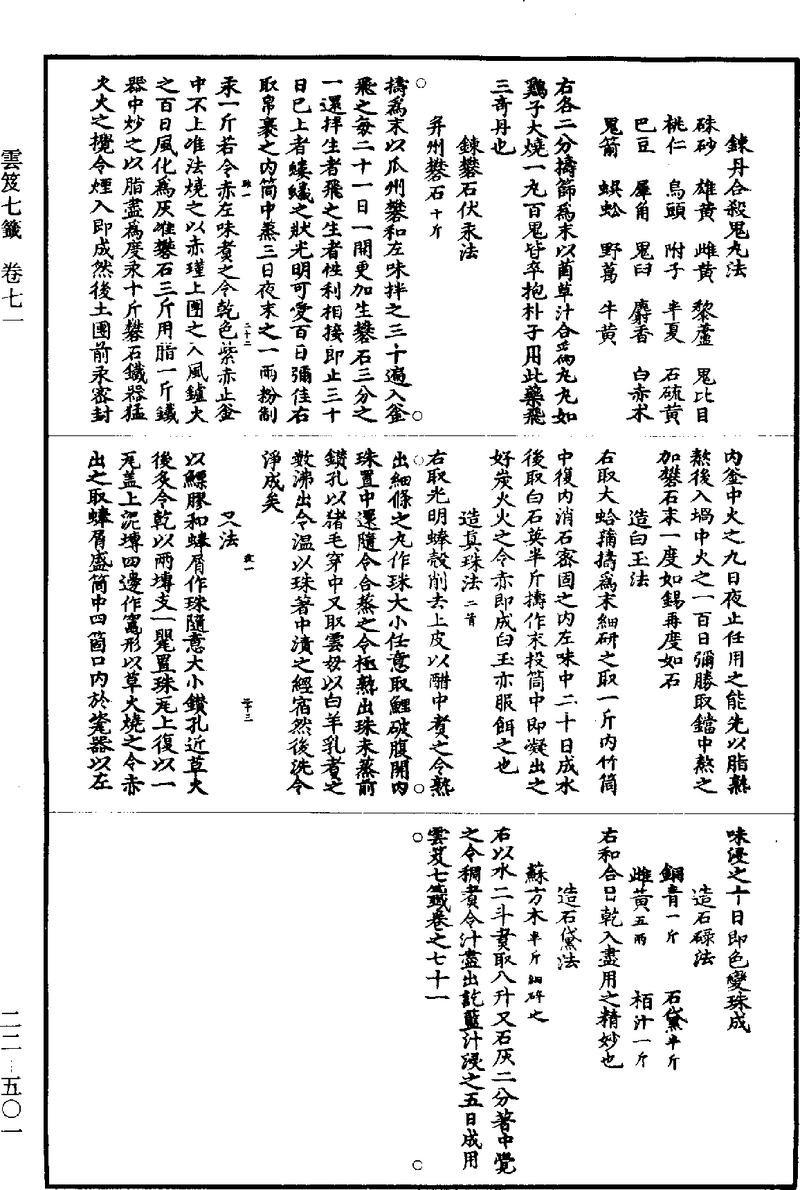 鍊丹合殺鬼丸法
硃砂　雄黃　雌黃　黎蘆　鬼比目
桃仁　烏頭　附子　半夏　石硫黃
巴豆　犀角　鬼臼　麝香　白赤术
鬼箭　蜈蚣　野葛　牛黃
右各二分擣篩爲末以菵草汁合爲丸丸如
鷄子大燒一丸百鬼皆卒抱朴子用此藥飛
三奇丹也
鍊礬石伏汞法
幷州礬石十斤
擣爲末以瓜州礬和左味拌之三十遍入釜
飛之每二十一日一開更加生礬石三分之
一還拌生者飛之生者性利相接即止三十
日已上者蝼蟻之狀光明可愛百日彌佳右
取帛裹之内筒中蒸三日夜末之一兩粉制
汞一斤若令赤左味煮之令乾色紫赤止釜
中不上唯法燒之以赤瑾上團之入風鑪火
之百日風化爲灰唯礬石三斤用脂一斤鐵
器中炒之以脂盡爲度汞十斤礬石鐵器猛
火火之攪令煙入即成然後土團前汞密封
内釜中火之九日夜止任用之能先以脂熬
熬後入堝中火之一百日彌勝取鐺中熬之
加礬石末一度如錫再度如石
造白玉法
右取大蛤蒱擣爲末細研之取一斤内竹筒
中復内消石密固之内左味中二十日成水
後取白石英半斤擣作末投筒中即凝出之
好炭火火之令赤即成白玉亦服餌之也
造真珠法二首
右取光明蜯殼削去上皮以酣中煮之令熟
出細條之丸作珠大小任意取鯉破腹開内
珠置中還隨令合蒸之令極熟出珠未蒸前
鑽孔以猪毛穿中又取雲母以白羊乳煮之
數沸出令温以珠著中漬之經宿然後洗令
淨成矣
又法
以鰾膠和蜯屑作珠隨意大小鑽孔近草火
後炙令乾以兩塼支一瓦置珠瓦上復以一
瓦盖上泥塼四邊作窰形以草火燒之令赤
出之取蜯屑盛筒中四箇口内於瓷器以左
味浸之十日即色變珠成
造石碌法
銅青一斤　石黛半斤
雌黃五兩　栢汁一斤
右和合日乾入盡用之精妙也
造石黛法
蘇方木半斤細碎之
右以水二斗煮取八升又石灰二分著中覺
之令稠煮令汁盡出訖藍汁浸之五日成用
雲笈七籤卷之七十一
雲笈七籤　卷七一
二二–五〇一